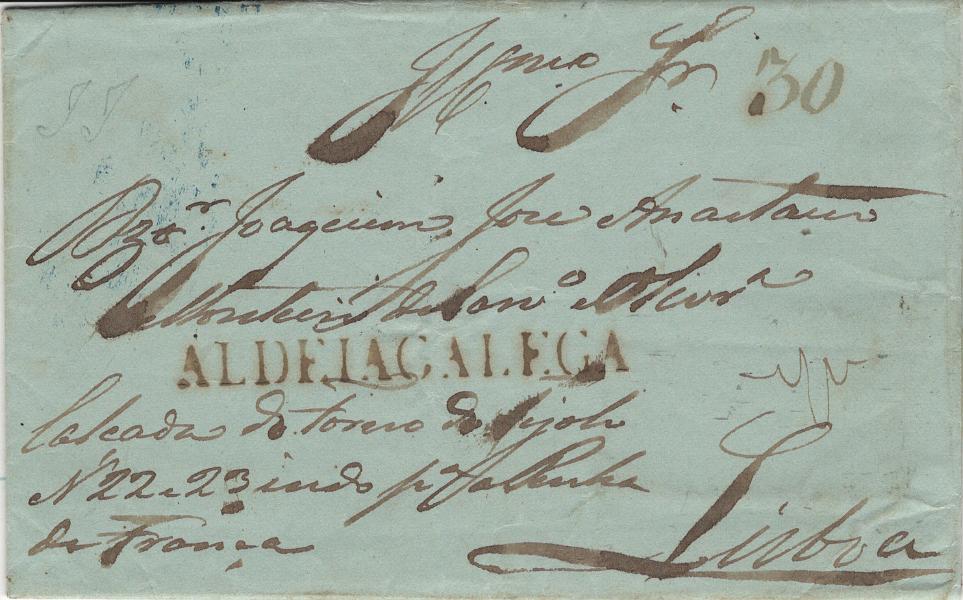 Illmo Sr. 30
Joaquim Jose Anastacio
Monteiro de Carvo e Olivra
ALDEIAGALEGA
Calcada do forno do tijolo
Nº 22 e 23 indo pa a Penha
de França
Lisboa